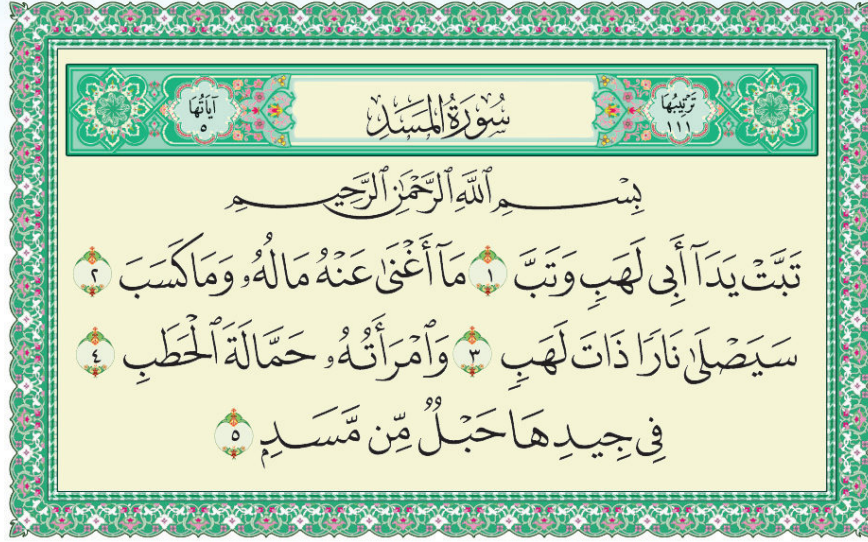 ترتيبها
١١١
سُورَةُ المَسَدِ
آياتُها
٥
بِسْمِ ٱللَّهِ ٱلرَّحْمَٰنِ ٱلرَّحِيمِ
تَبَّتْ يَدَآ أَبِى لَهَبٍ وَتَبَّ ١ مَآ أَغْنَىٰ عَنْهُ مَالُهُۥ وَمَا كَسَبَ ٢
سَيَصْلَىٰ نَارًا ذَاتَ لَهَبٍ ٣ وَٱمْرَأَتُهُۥ حَمَّالَةَ ٱلْحَطَبِ ٤
فِى جِيدِهَا حَبْلٌ مِّن مَّسَدٍ ٥